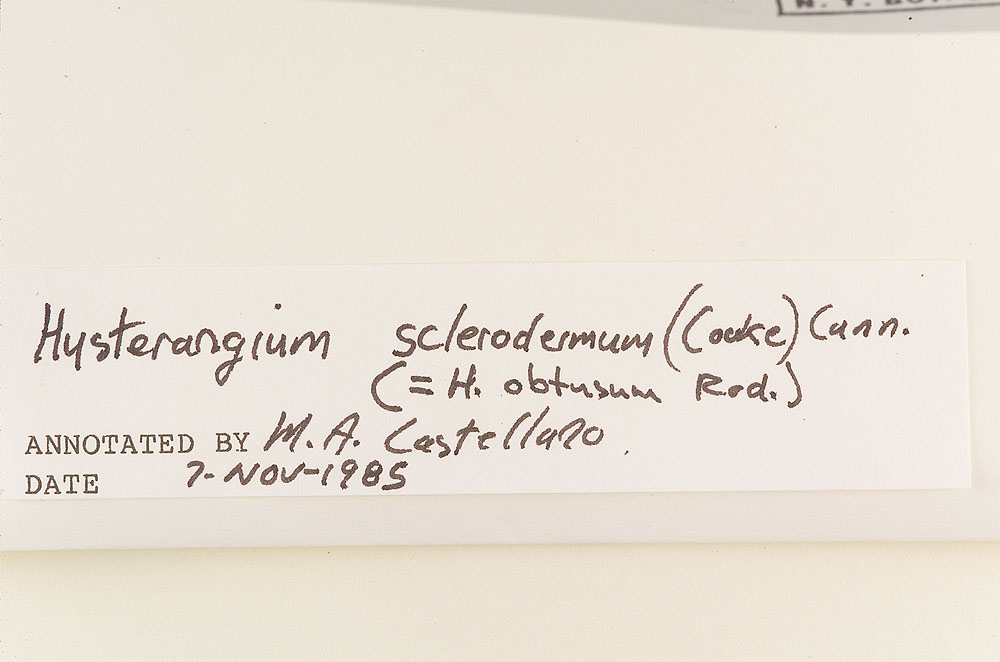 N. Y. BOT
Hysterangium sclerodermum (Cooke) Cunn.
(= H. obtusum Rod.)
ANNOTATED BY M. A. Castellano
DATE 7-NOV-1985